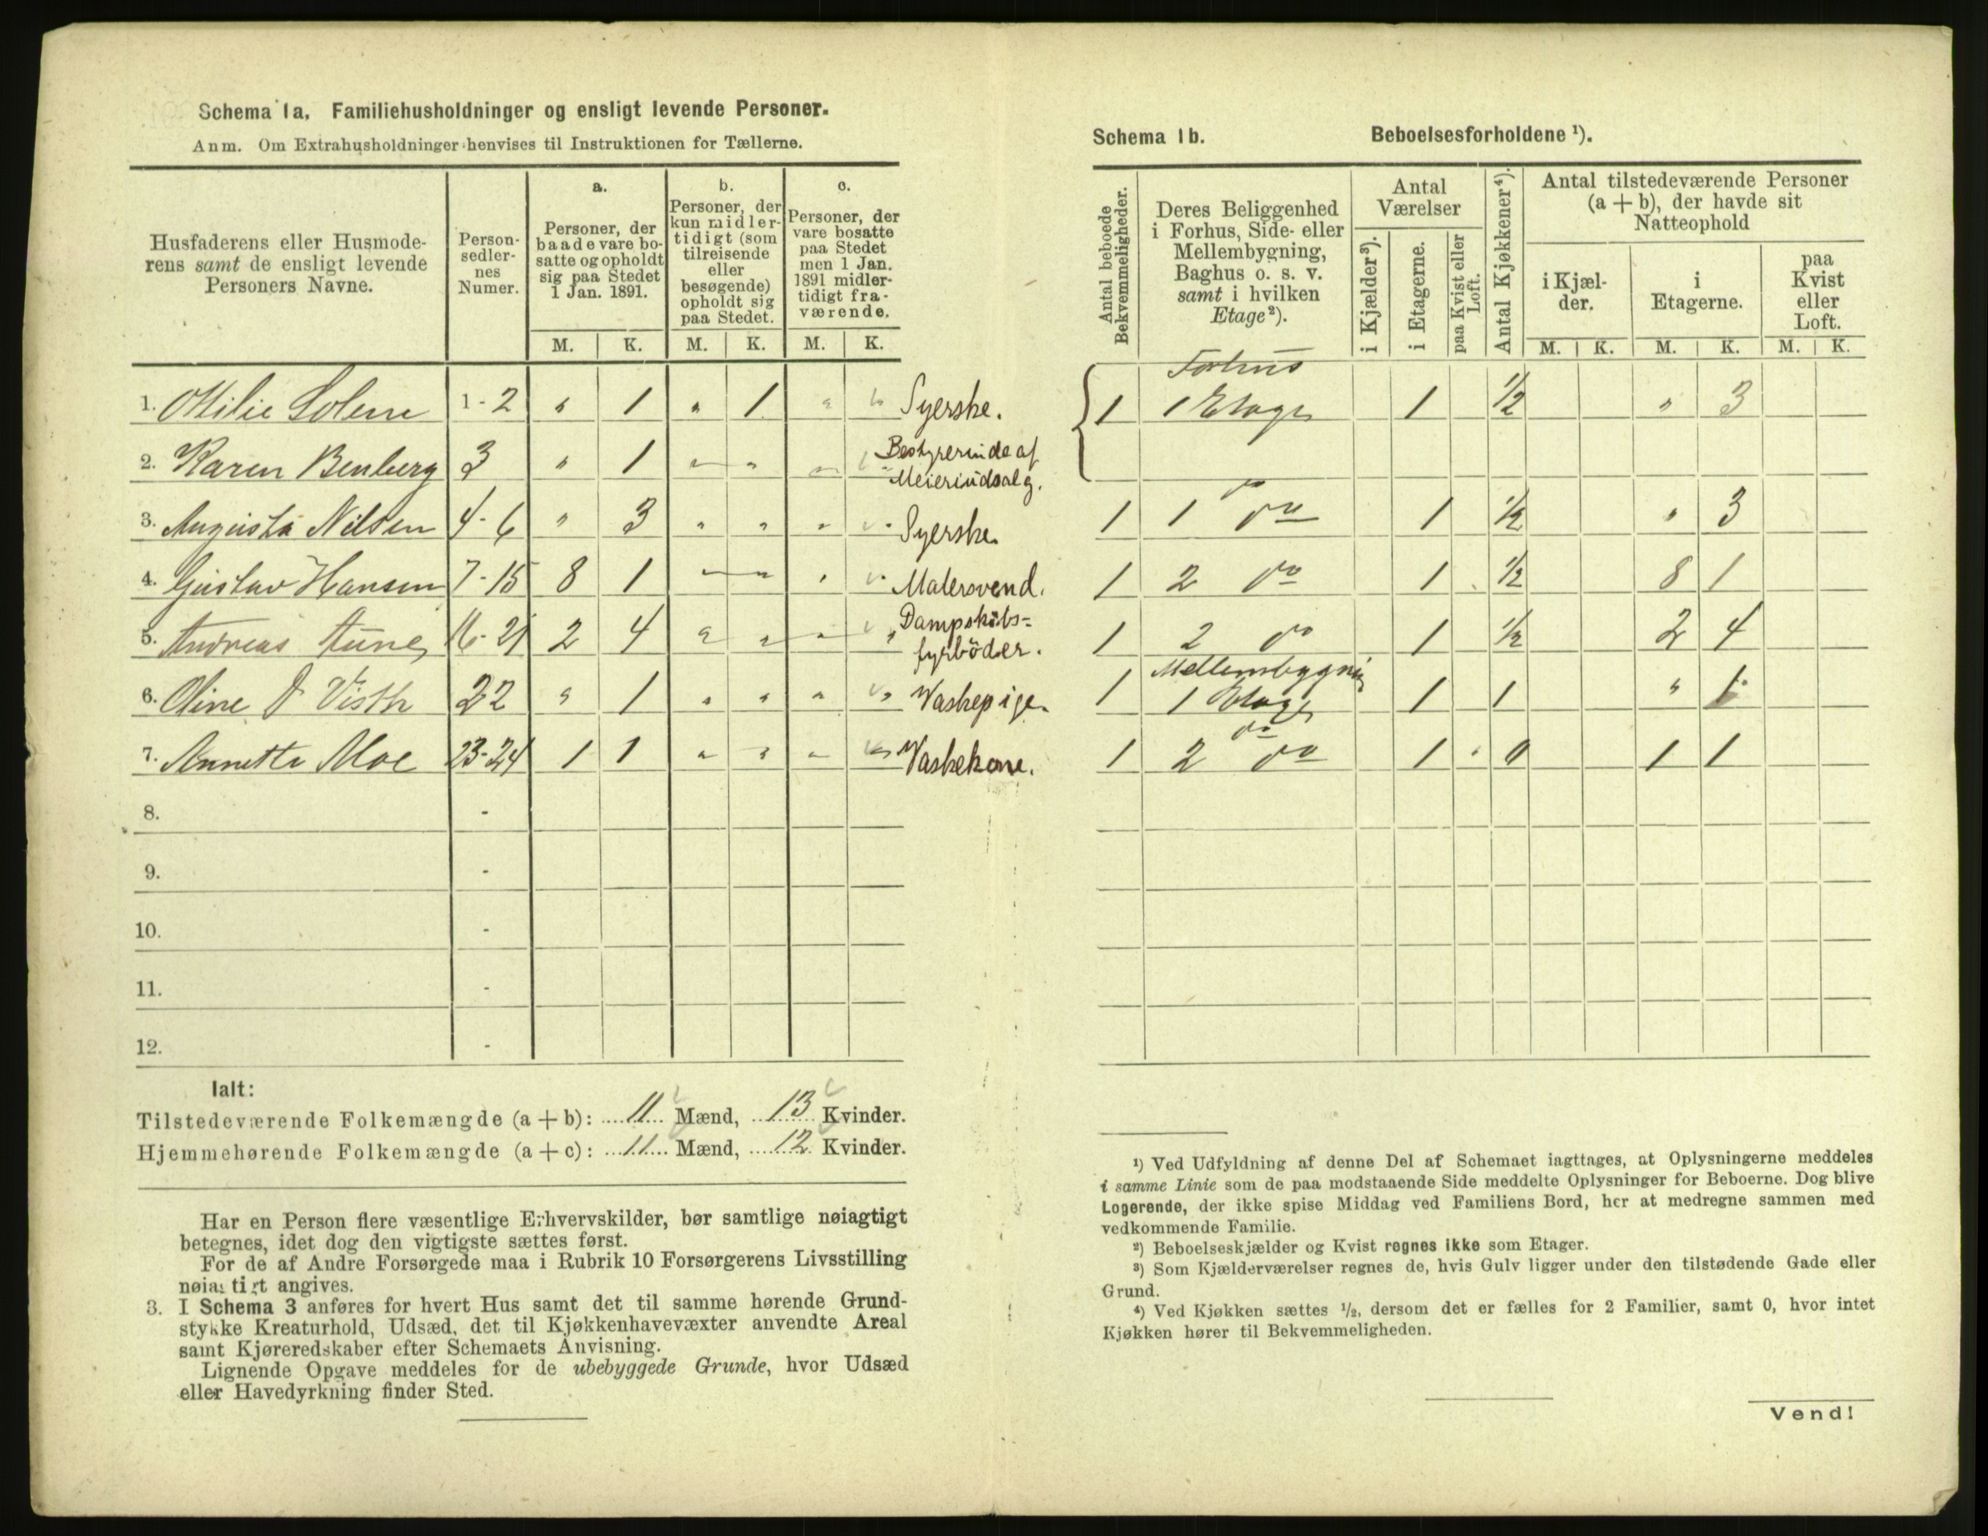 Schema 1a. Familiehusholdninger og ensligt levende Personer.
Anm. Om Extrahusholdninger henvises til Instruktionen for Tællerne.
Husfaderens eller Husmode-
rens samt de ensligt levende
Personers Navne.
Person-
sedler-
nes
Numer.
a.
Personer, der
baade vare bo-
satte og opholdt
sig paa Stedet
1 Jan. 1891.
b.
Personer, der
kun midler-
tidigt (som
tilreisende
eller
besøgende)
opholdt sig
paa Stedet.
c.
Personer, der
vare bosatte
paa Stedet
men 1 Jan.
1891 midler-
tidigt fra-
værende.
M. K. M. K. M. K.
1. Otilie Solem 1-2 " 1 " 1 " " Syerske.
2. Karen Benberg 3 " 1 " " " " Bestyrerinde af
Meieriudsalg.
3. Augusta Nilsen 4-6 " 3 " " " " Syerske
4. Gustav Hansen 7-15 8 1 " " " " Malersvend.
5. Andreas Aune 16-21 2 4 " " " " Dampskibs=
fyrböder.
6. Oline D Visth 22 " 1 " " " " Vaskepige.
7. Annette Moe 23-24 1 1 " " " " Vaskekone.
8. -
9. -
10. -
11. -
12. -
Ialt:
Tilstedeværende Folkemængde (a + b): 11 Mænd, 13 Kvinder.
Hjemmehørende Folkemængde (a + c): 11 Mænd, 12 Kvinder.
Har en Person flere væsentlige Erhvervskilder, bør samtlige nøiagtigt
betegnes, idet dog den vigtigste sættes først.
For de af Andre Forsørgede maa i Rubrik 10 Forsørgerens Livsstilling
nøiagtigt angives.
3. I Schema 3 anføres for hvert Hus samt det til samme hørende Grund-
stykke Kreaturhold, Udsæd, det til Kjøkkenhavevæxter anvendte Areal
samt Kjøreredskaber efter Schemaets Anvisning.
Lignende Opgave meddeles for de ubebyggede Grunde, hvor Udsæd
eller Havedyrkning finder Sted.
Schema 1b. Beboelsesforholdene ¹).
Antal beboede
Bekvemmeligheder.
Deres Beliggenhed
i Forhus, Side- eller
Mellembygning,
Baghus o. s. v.
samt i hvilken
Etage²).
Antal
Værelser
i Kjælder³).
i Etagerne.
paa Kvist eller
Loft.
Antal Kjøkkener⁴).
Antal tilstedeværende Personer
(a + b), der havde sit
Natteophold
i Kjæl-
der.
i
Etagerne.
paa
Kvist
eller
Loft.
M. K. M. K. M. K.
Forhus
1 1 Etage 1 ½ " 3
1 1 do do 1 ½ " 3
1 2 do 1 ½ 8 1
1 2 do 1 ½ 2 4
Mellembygning
1 1 Etage 1 1 " 1
do
1 2 do 1 0 1 1
¹) Ved Udfyldning af denne Del af Schemaet iagttages, at Oplysningerne meddeles
i samme Linie som de paa modstaaende Side meddelte Oplysninger for Beboerne. Dog blive
Logerende, der ikke spise Middag ved Familiens Bord, her at medregne sammen med
vedkommende Familie.
²) Beboelseskjælder og Kvist regnes ikke som Etager.
³) Som Kjælderværelser regnes de, hvis Gulv ligger under den tilstødende Gade eller
Grund.
⁴) Ved Kjøkken sættes ½, dersom det er fælles for 2 Familier, samt 0, hvor intet
Kjøkken hører til Bekvemmeligheden.
Vend!